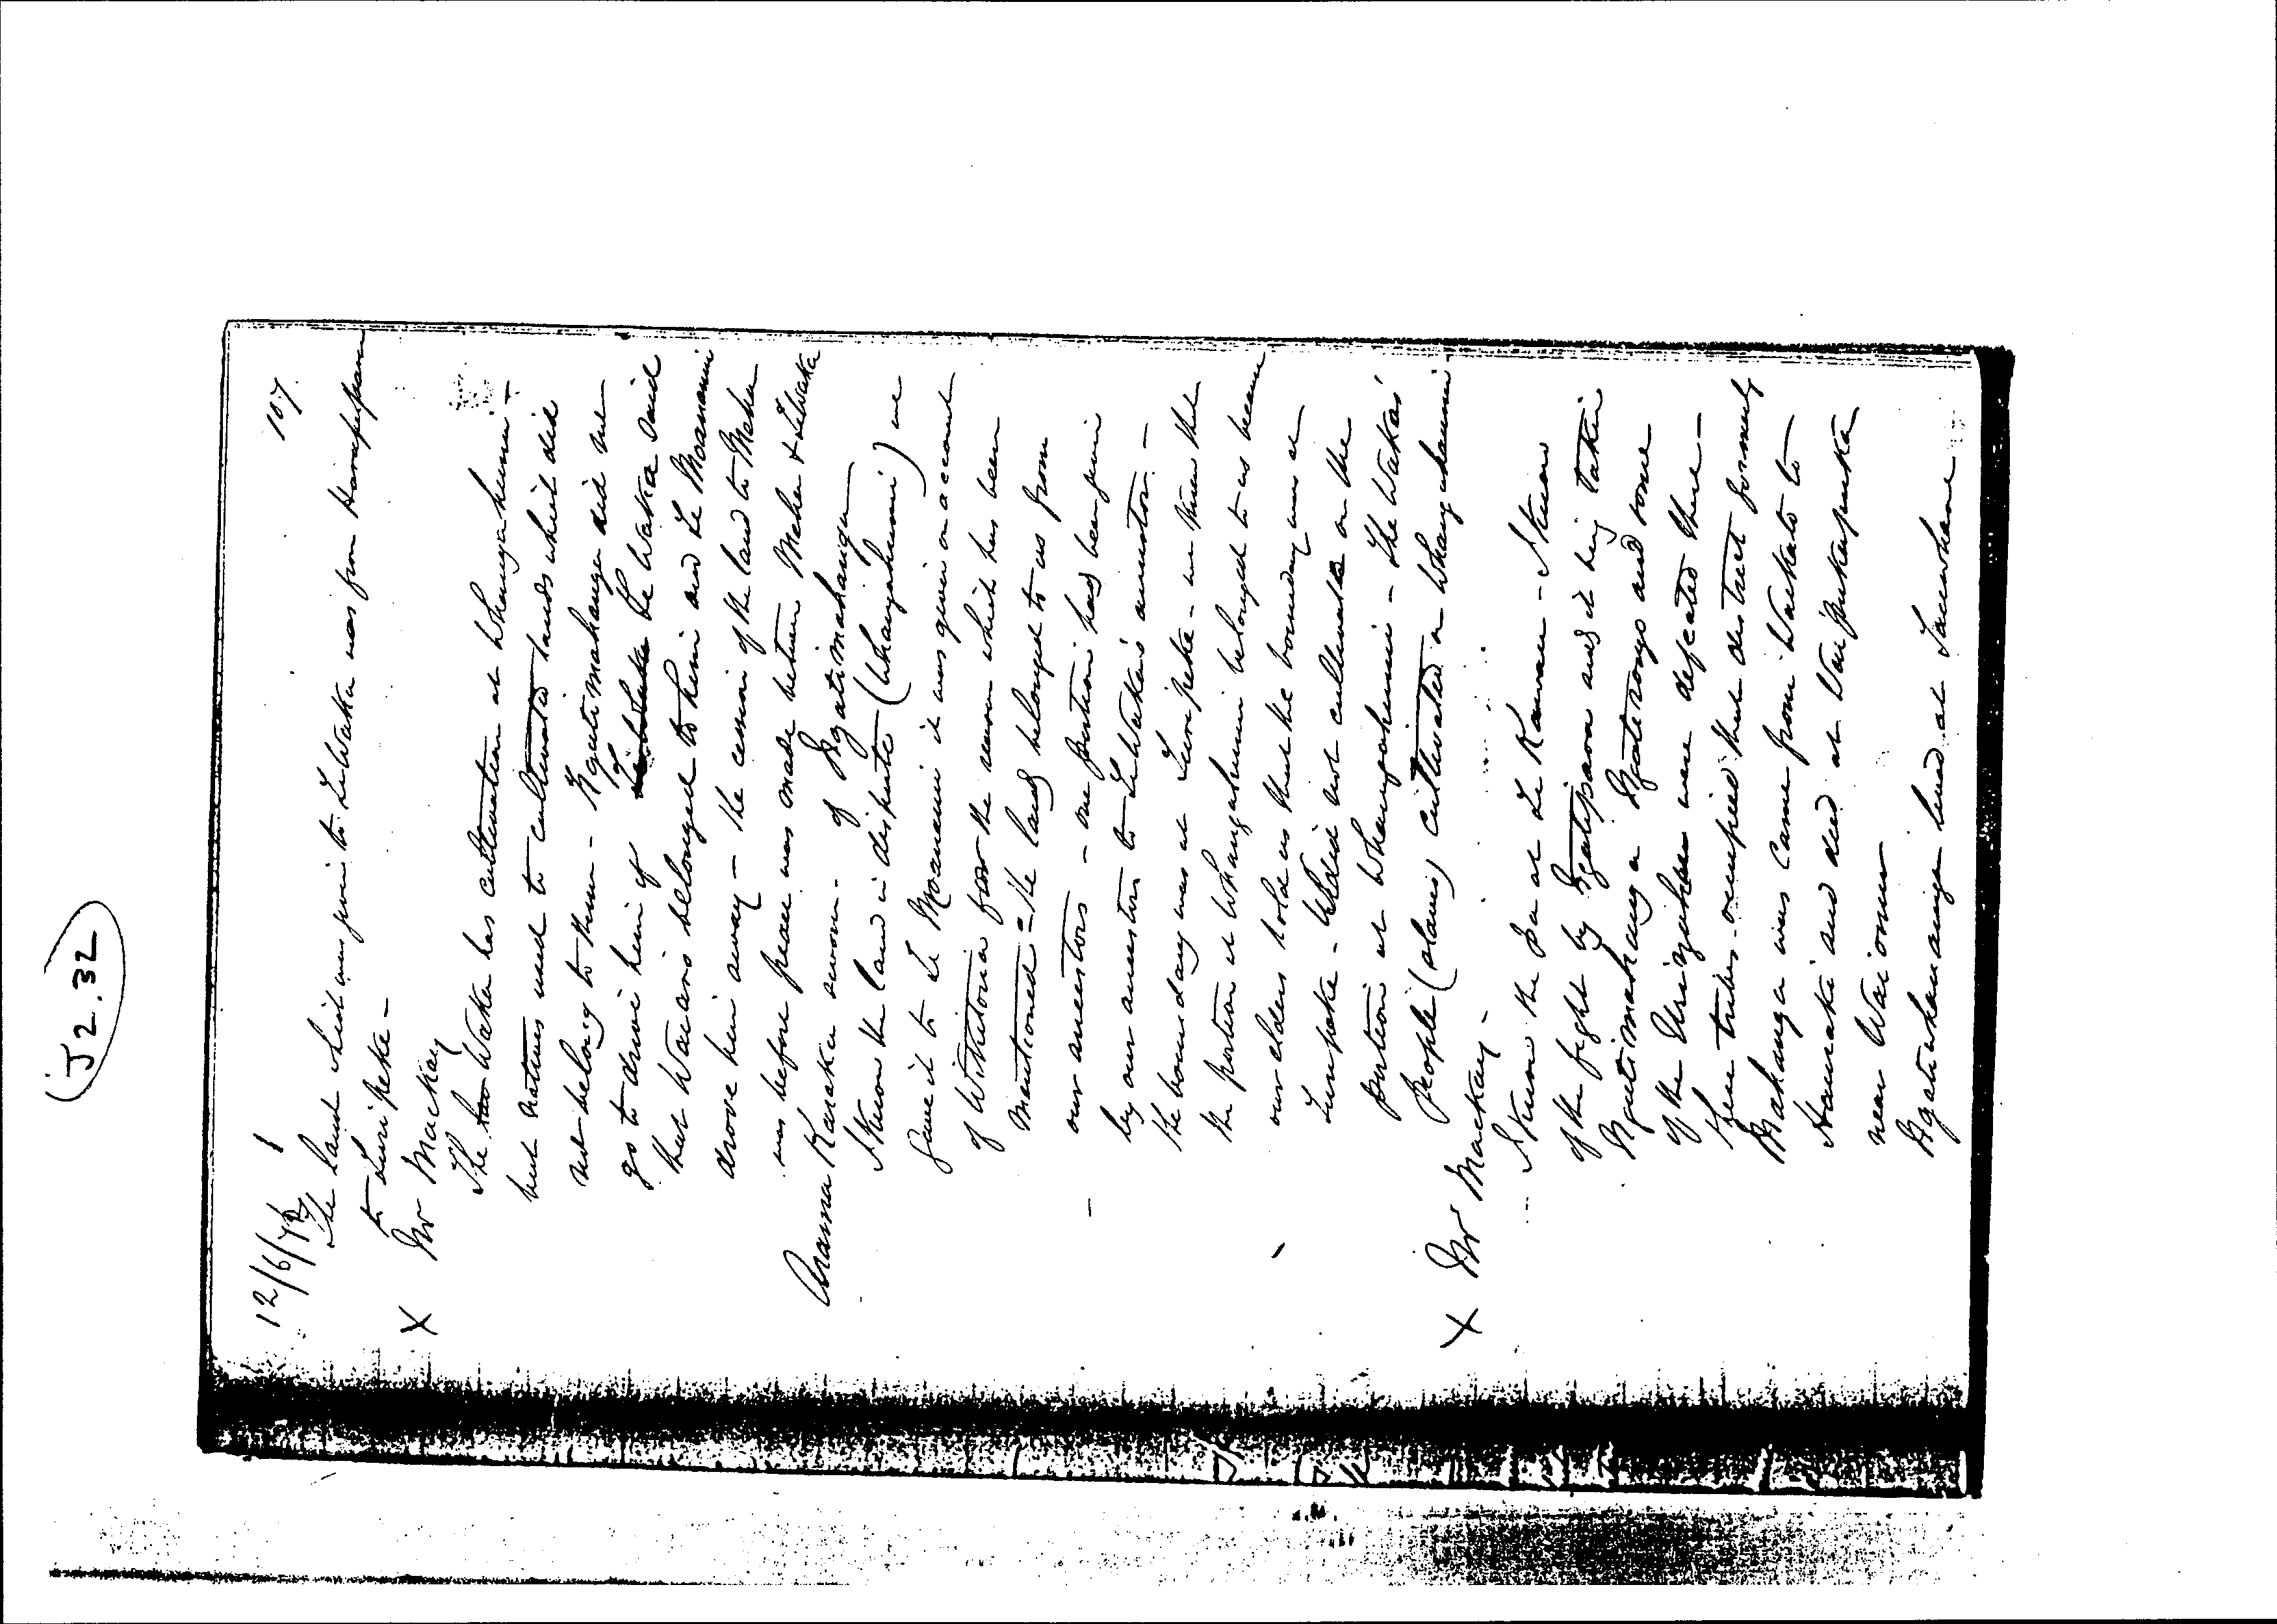 (J2.32)
12/6/7
107.
The land which was given to Te Waka was from
to Turipeke -
X Mr Mackay
The Waka has cultivation at Whangahumi -
but natives used to cultivated lands which did
not belong to them - Ngatimahanga did not
go to drive him off Te Waka said
that Waiaro belonged to him and Te Moananui
drove him away - the cession of the land to Meha
was before peace was made between Meha & Te Waka
Arama Karaka sworn - of Ngatimahanga
I know the land in dispute (Whangahumi) we
gave it to Te Moananui it was given on account
of Wiketoria for the reason which has been
mentioned - the land belonged to us from
our ancestors - one portion had been given
by our ancestor to Te Waka's ancestor -
the boundary was at Turipeke - we knew that
the portion at Whangahumi belonged to us because
our elders told us that the boundary was at
Turipeke - did not cultivate on the
portion at Whangahumi - The Waka's
people (slaves) cultivated on Whangahumi
X Mr Mackay -
I know the Pa at Te Kawau - I know
of the fight by Ngatipaoa and it being taken
Ngatimahanga Ngatirongo and some
of the were defeated there -
these tribes occupied that district formerly
Mahanga was came from Waikato to
Hauraki and died at Waipukapuka
near Waiomu
Ngatimahanga lived at